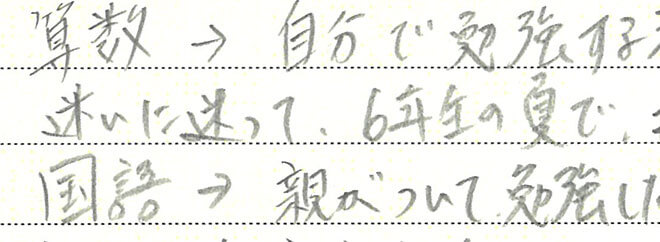 算数 → 自分で勉強する
迷いに迷って、6年生の夏で、
国語 → 親がついて勉強した